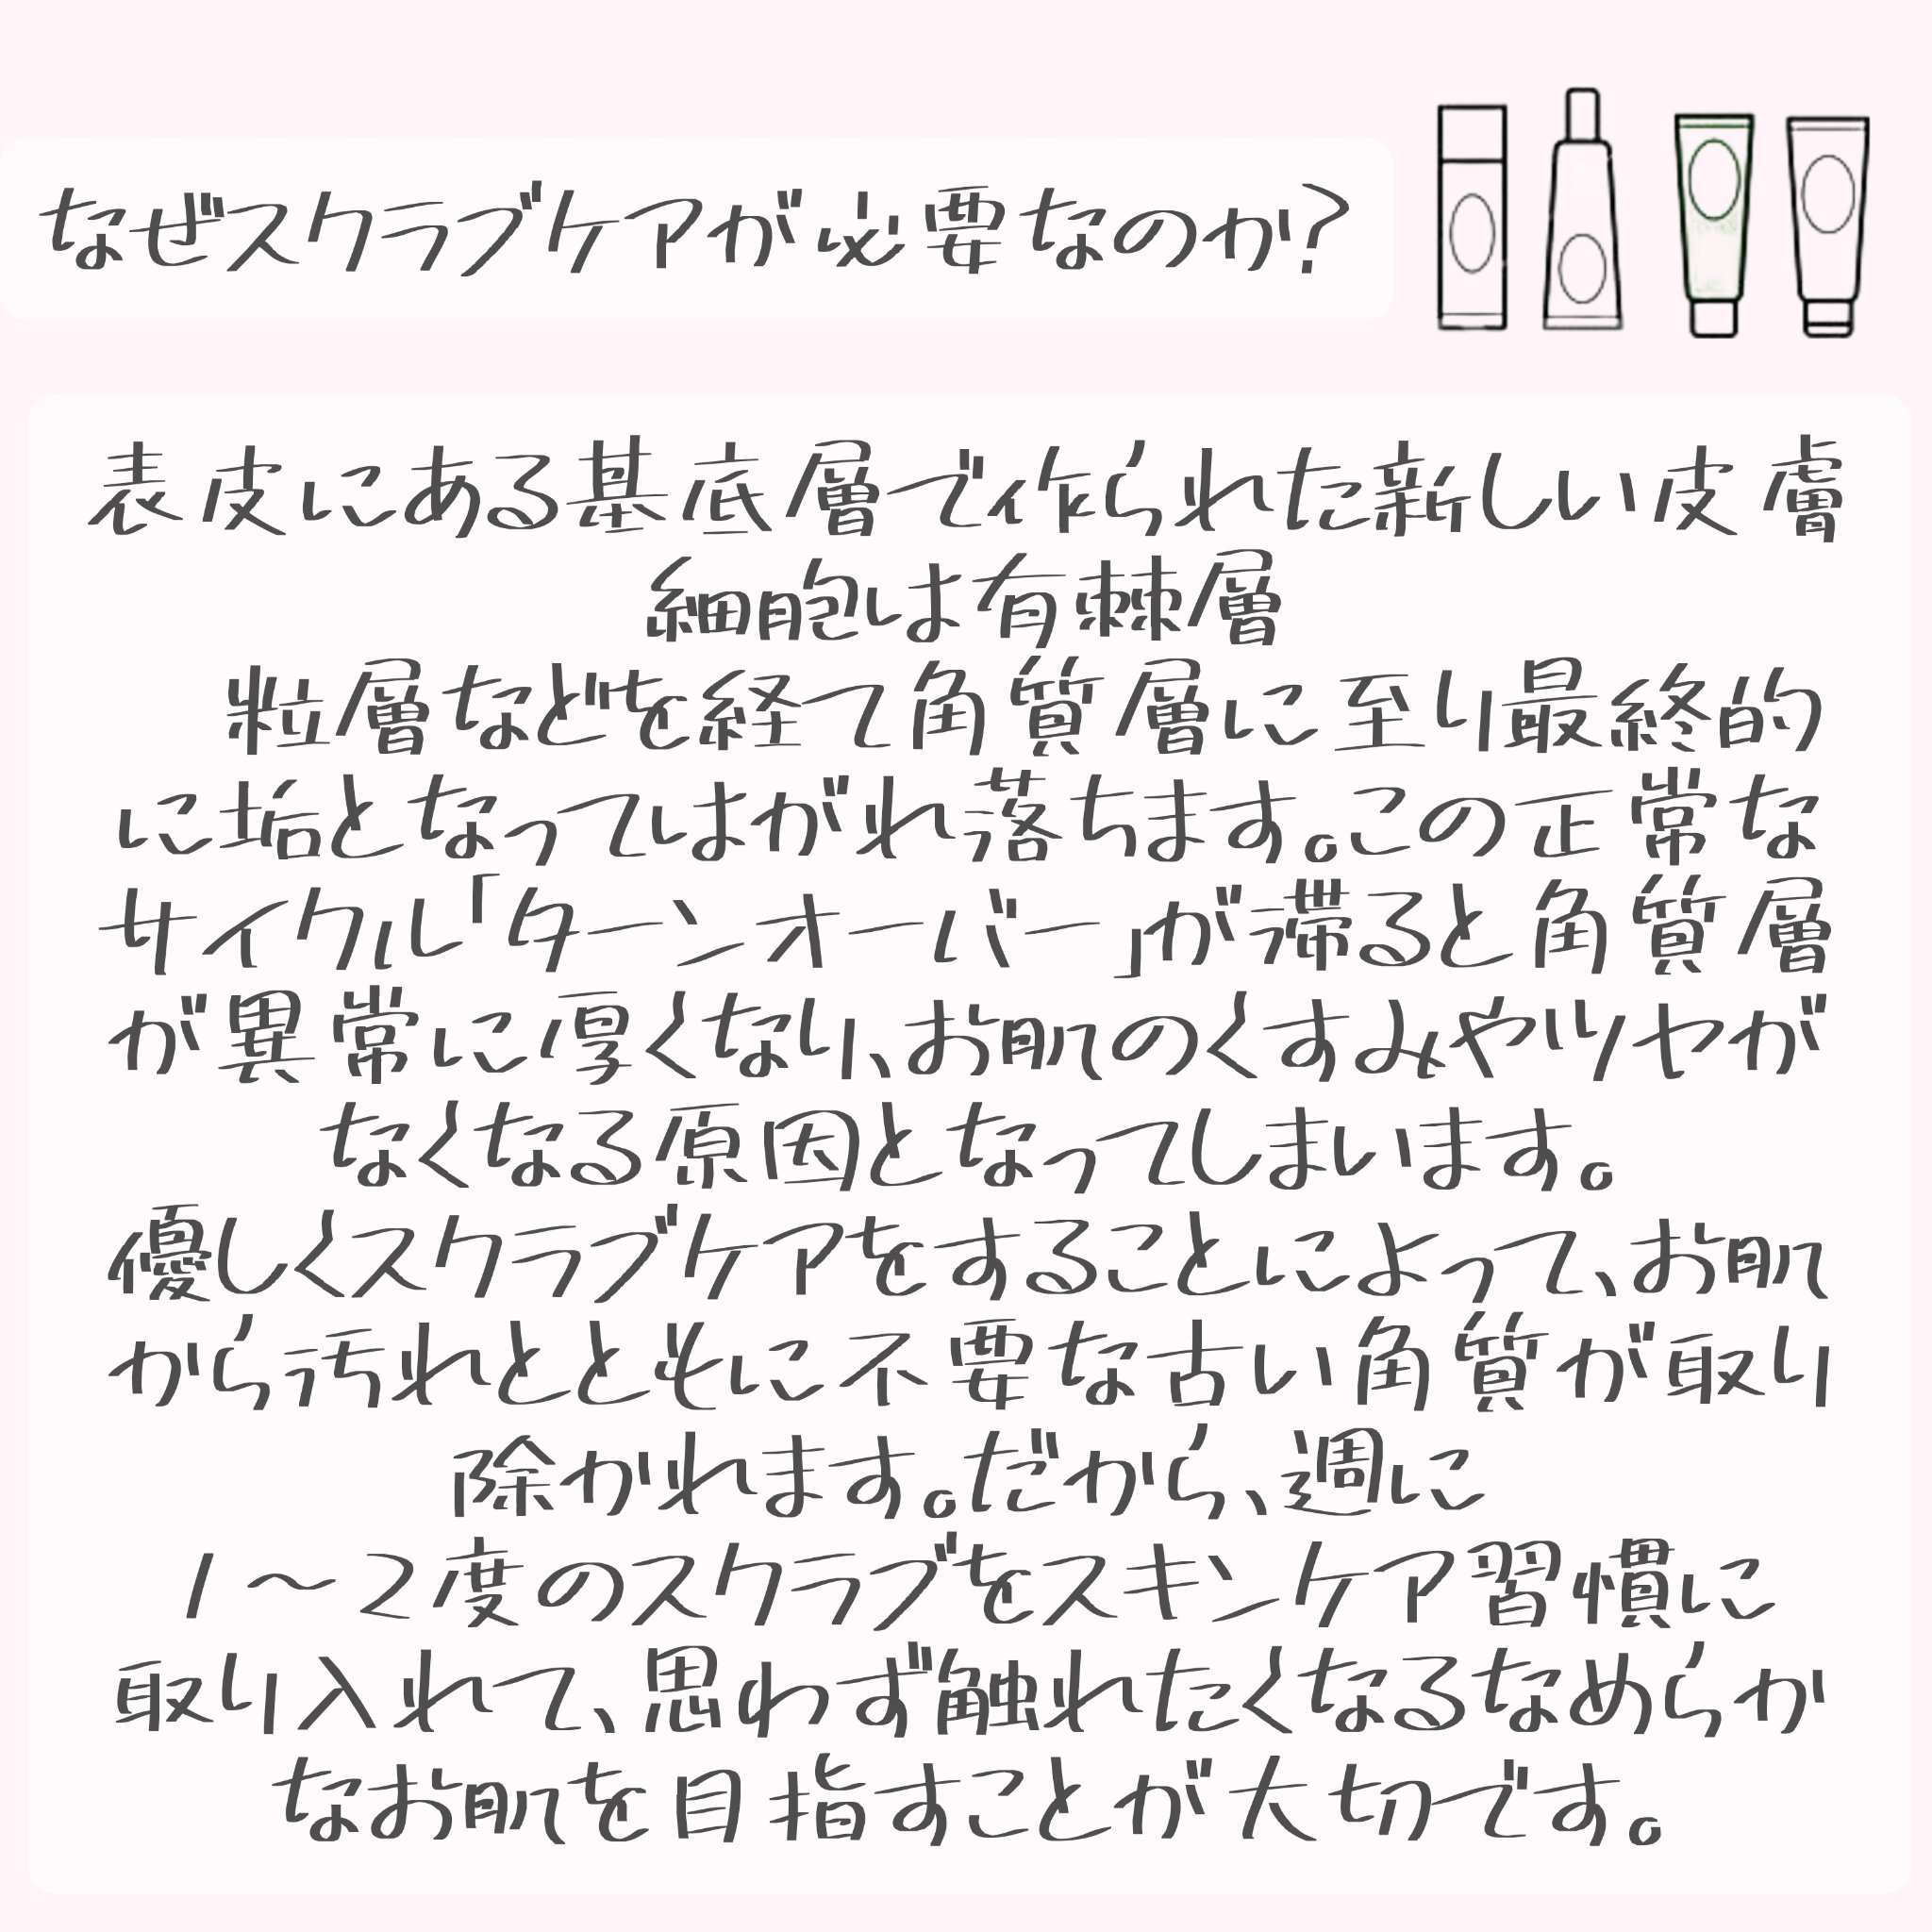 なぜスクラブケアが必要なのか?
表皮にある基底層で作られた新しい皮膚
細胞は有棘層
粒層などを経て角質層に至り最終的
に垢となってはがれ落ちます。この正常な
サイクル「ターンオーバー」が滞ると角質層
が異常に厚くなり、お肌のくすみやツヤが
なくなる原因となってしまいます。
優しくスクラブケアをすることによって、お肌
から汚れとともに不要な古い角質が取り
除かれます。だから、週に
1〜2度のスクラブをスキンケア習慣に
取り入れて、思わず触れたくなるなめらか
なお肌を目指すことが大切です。